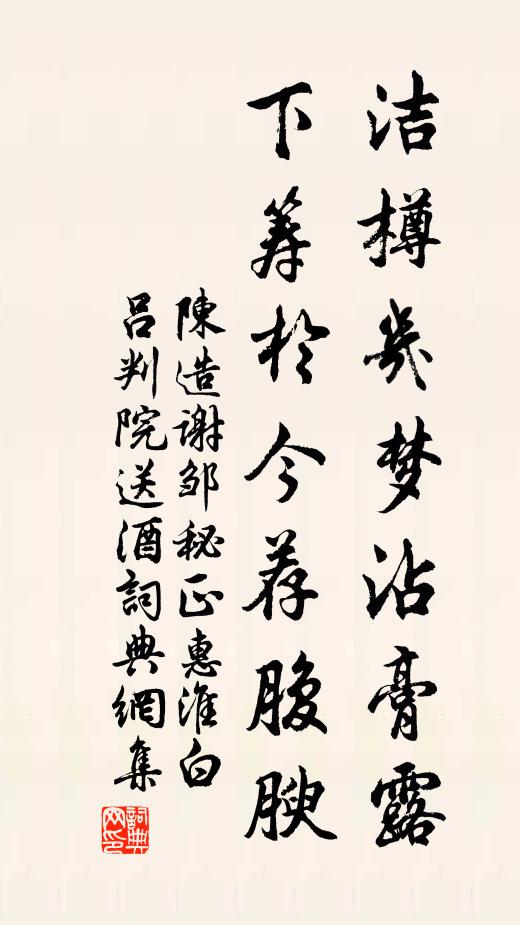 洁樽幾梦沾膏露
下筹於今荐腹腴
陳造谢邹秘正惠淮白
吕判院送酒詞典網集
詞典网印